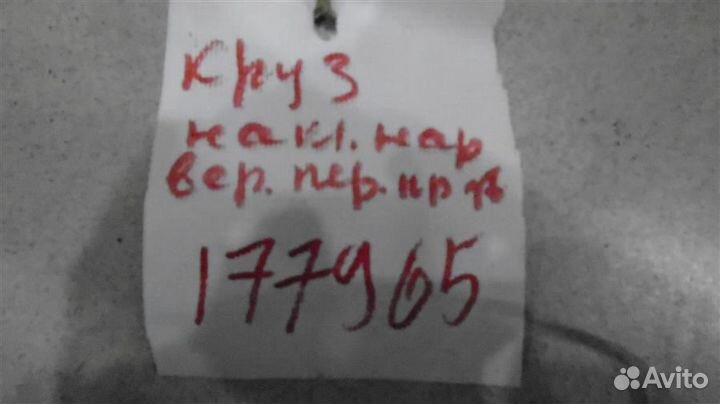 Круз
накл. нар
вер. пер. пр
177965
Avito